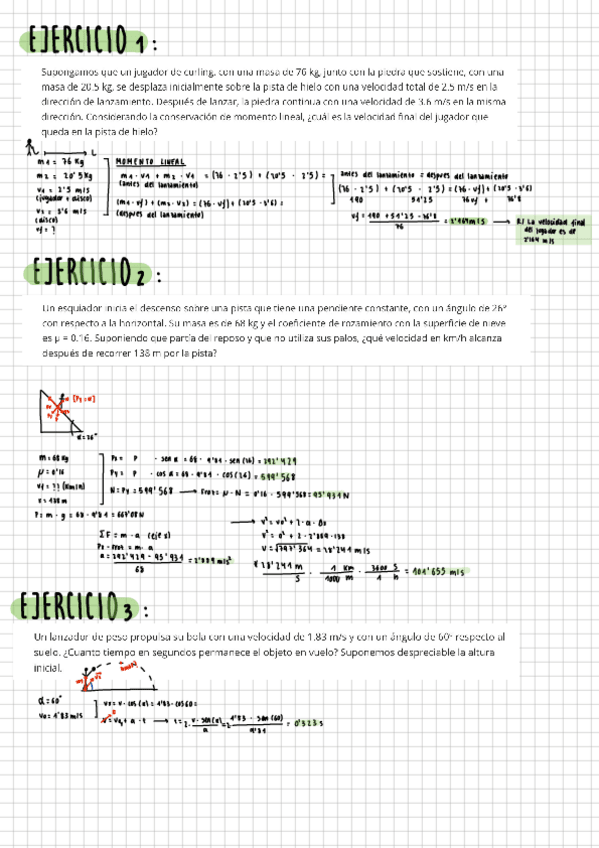 EJERCICIO 1:
Supongamos que un jugador de curling, con una masa de 76 kg, junto con la piedra que sostiene, con una
masa de 20.5 kg, se desplaza inicialmente sobre la pista de hielo con una velocidad total de 2.5 m/s en la
dirección de lanzamiento. Después de lanzar, la piedra continua con una velocidad de 3.6 m/s en la misma
dirección. Considerando la conservación de momento lineal, ¿cuál es la velocidad final del jugador que
queda en la pista de hielo?
m1 = 76 Kg
MOMENTO LINEAL
m2 = 20'5 Kg
m1 · v1 + m2 · v1 = (76 · 2'5) + (20'5 · 2'5) =
(antes del lanzamiento)
v1 = 2'5 m/s
(jugador + disco)
(m1 · vf) + (m2 · v2) = (76 · vf) + (20'5 · 3'6) =
(despues del lanzamiento)
v2 = 3'6 m/s
(disco)
vf = ?
antes del lanzamiento = despues del lanzamiento
(76 · 2'5) + (20'5 · 2'5) = (76 · vf) + (20'5 · 3'6)
190 51'25 76 vf
76
R/ La velocidad final
del jugador es de
m/s
EJERCICIO 2:
Un esquiador inicia el descenso sobre una pista que tiene una pendiente constante, con un ángulo de 26°
con respecto a la horizontal. Su masa es de 68 kg y el coeficiente de rozamiento con la superficie de nieve
es μ = 0.16. Suponiendo que partía del reposo y que no utiliza sus palos, ¿qué velocidad en km/h alcanza
después de recorrer 138 m por la pista?
α = 26°
m = 68 Kg
μ = 0'16
vf = ?? (Km/h)
x = 138 m
P = m · g = 68 · 9'81 = 667'08 N
Px = P · sen α = 68 · 9'81 · sen (26) = 292'429
Py = P · cos α = 68 · 9'81 · cos (26) = 599'568
N = Py = 599'568 → Froz = μ · N = 0'16 · 599'568 = 95'931 N
ΣF = m · a (eje x)
Px - Froz = m · a
a = 292'429 - 95'931 = 2'889 m/s²
68
→ v² = vo² + 2 · a · Δx
v² = 0² + 2 · 2'889 · 138
v = √797'364 = 28'241 m/s
28'241 m · 1 Km · 3600 s = 101'655 m/s
s 1000 m 1 h
EJERCICIO 3:
Un lanzador de peso propulsa su bola con una velocidad de 1.83 m/s y con un ángulo de 60° respecto al
suelo. ¿Cuanto tiempo en segundos permanece el objeto en vuelo? Suponemos despreciable la altura
inicial.
α = 60°
vo = 1'83 m/s
vx = v · cos (α) = 1'83 · cos 60 =
v = vy + a · t → t = 2 · v · sen(α) = 2 1'83 · sen (60) = 0'323 s
a 9'81